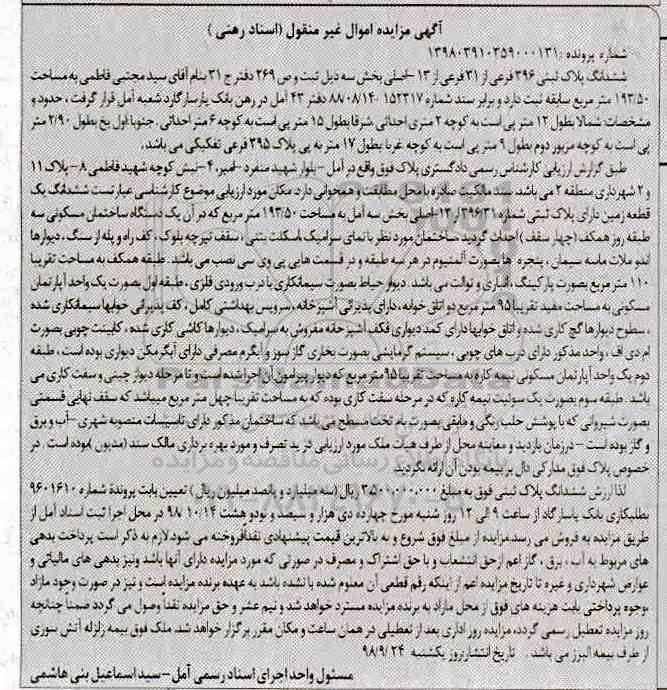 آگهی مزایده اموال غیر منقول (اسناد رهنی)
شماره پرونده: ۱۳۹۸۰۳۹۱۰۳۵۹۰۰۰۱۳۱
ششدانگ پلاک ثبتی ۳۹۶ فرعی از ۳۱ فرعی از ۱۳-اصلی بخش سه ذیل ثبت و ص ۲۶۹ دفتر ج ۳۱ بنام آقای سید مجتبی فاطمی به مساحت
۱۹۳/۵۰ متر مربع سابقه ثبت دارد و برابر سند شماره ۱۵۲۳۱۷-۸۸/۰۸/۱۴ دفتر ۴۳ آمل در رهن بانک پارسارگارد شعبه آمل قرار گرفت، حدود و
مشخصات: شمالا بطول ۱۲ متر پی است به کوچه ۲ متری احداثی، شرقا بطول ۱۵ متر پی است به کوچه ۶ متر احداثی. جنوبا اول یخ بطول ۲/۹۰ متر
پی است به کوچه مزبور دوم بطول ۹ متر پی است به کوچه غربا بطول ۱۷ متر به پی پلاک ۳۹۵ فرعی تفکیکی می باشد.
طبق گزارش ارزیابی کارشناس رسمی دادگستری پلاک فوق واقع در آمل -بلوار شهید منفرد-امیر ۴-نبش کوچه شهید فاطمی ۸-پلاک ۱۱
و ۲ شهرداری منطقه ۲ می باشد. سند مالکیت صادره با محل مطابقت و همخوانی دارد. مکان مورد ارزیابی موضوع کارشناسی عبارتست ششدانگ یک
قطعه زمین دارای پلاک ثبتی شماره ۳۹۶/۳۱ از ۱۳-اصلی بخش سه آمل به مساحت ۱۹۳/۵۰ متر مربع که در آن یک دستگاه ساختمان مسکونی سه
طبقه روز همکف (چهار سقف) احداث گردید. ساختمان مورد نظر با نمای سرامیک باسکلت بتنی، سقف تیرچه بلوک، کف راه و پله از سنگ، دیوارها
اندو ملات ماسه سیمان، پنجره ها بصورت آلمنیوم در هر سه طبقه و در قسمت هایی پی وی سی نصب می باشد. طبقه همکف به مساحت تقریبا
۱۱۰ متر مربع بصورت پارکینگ، انباری و توالت می باشد. دیوار حیاط بصورت سیمانکاری با درب ورودی فلزی، طبقه اول بصورت یک واحد آپارتمان
مسکونی به مساحت مفید تقریبا ۹۵ متر مربع دو اتاق خوابه، دارای پذیرائی آشپزخانه، سرویس بهداشتی کامل، کف پذیرائی خوابها سیمانکاری شده
، سطوح دیوارها گچ کاری شده و اتاق خوابها دارای کمد دیواری فکف آشپزخانه مفروش به سرامیک، دیوارها کاشی کاری شده، کابینت چوبی بصورت
ام دی اف، واحد مذکور دارای درب های چوبی، سیستم گرمایشی بصورت بخاری گاز سوز و آبگرم مصرفی دارای آبگرمکن دیواری بوده است، طبقه
دوم یک واحد آپارتمان مسکونی نیمه کاره به مساحت تقریبا ۹۵ متر مربع که دیوار پیرامون آن اجرا شده است و تا مرحله دیوار چینی و سفت کاری می
باشد. طبقه سوم بصورت یک سوئیت نیمه کاره که در مرحله سفت کاری بوده که به مساحت تقریبا چهل متر مربع میباشد که سقف نهایی قسمتی
بصورت شیروانی که با پوشش حلب رنگی و مابقی بصورت بام تخت مسطح می باشد که ساختمان مذکور دارای تاسیسات منصوبه شهری -آب و برق
و گاز بوده است - در زمان بازدید و معاینه محل از طرف هیأت ملک مورد ارزیابی در ید تصرف و مورد بهره برداری مالک سند (مدیون) بوده است. در
خصوص پلاک فوق مدارکی دال بر بیمه بودن آن ارائه نگردید.
لذا ارزش ششدانگ پلاک ثبتی فوق به مبلغ ۳،۵۰۰،۰۰۰،۰۰۰ ریال (سه میلیارد و پانصد میلیون ریال) تعیین بابت پروندة شماره ۹۶۰۱۶۱۰
بطلبکاری بانک پاسارگاد از ساعت ۹ الی ۱۲ روز شنبه مورخ چهارده دی هزار و سیصد و نود و هشت ۹۸/۱۰/۱۴ در محل اجرا ثبت اسناد آمل از
طریق مزایده به فروش می رسد.مزایده از مبلغ فوق شروع و به بالاترین قیمت پیشنهادی نقداً فروخته می شود.لازم به ذکر است پرداخت بدهی
های مربوط به آب، برق، گاز اعم از حق انشعاب و یا حق اشتراک و مصرف در صورتی که مورد مزایده دارای آنها باشد ونیز بدهی های مالیاتی و
عوارض شهرداری و غیره تا تاریخ مزایده اعم از اینکه رقم قطعی آن معلوم شده یا نشده باشد به عهده برنده مزایده است و نیز در صورت وجود مازاد
،وجوه پرداختی بابت هزینه های فوق از محل مازاد به برنده مزایده مسترد خواهد شد و نیم عشر و حق مزایده نقداً وصول می گردد ضمناً چنانچه
روز مزایده تعطیل رسمی گردد، مزایده روز اداری بعد از تعطیلی در همان ساعت و مکان مقرر برگزار خواهد شد. ملک فوق بیمه زلزله آتش سوزی
از طرف بیمه البرز می باشد. تاریخ انتشار:روز یکشنبه ۹۸/۹/۲۴
مسئول واحد اجرای اسناد رسمی آمل-سید اسماعیل بنی هاشمی